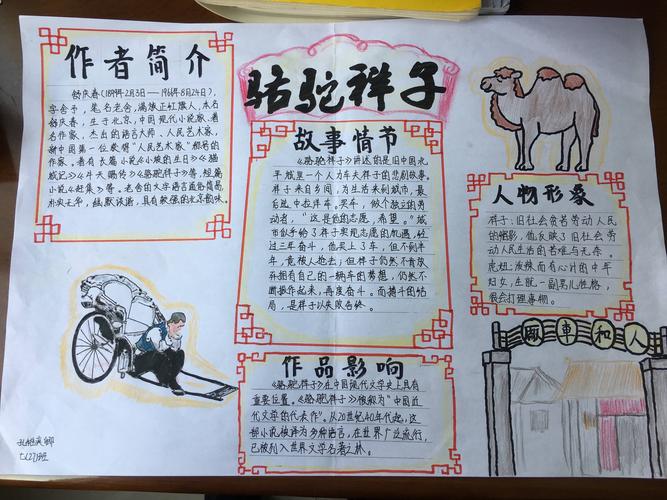 骆驼祥子
作者简介
舒庆春(1899年2月3日—1966年8月24日),
字舍予,笔名老舍,满族正红旗人,本名
舒庆春,生于北京,中国现代小说家、著
名作家、杰出的语言大师、人民艺术家,
新中国第一位获得“人民艺术家”称号的
作家。著有长篇小说《小坡的生日》《猫
城记》《牛天赐传》《骆驼祥子》等,短篇
小说《赶集》等。老舍的文学语言通俗简易,
朴实无华,幽默诙谐,具有较强的北京韵味。
故事情节
《骆驼祥子》讲述的是旧中国北
平城里一个人力车夫祥子的悲剧故事。
祥子来自乡间,为生活来到城市,最
后选中拉洋车。买车,做个独立的劳
动者,“这是他的志愿,希望。”城市
似乎给了祥子实现志愿的机遇,经
过三年奋斗,他买上了车,但不到半
年,竟被人抢去;但祥子仍然不肯放
弃拥有自己的一辆车的梦想,仍然不
断振作起来,再度奋斗。而搏斗的结
局,是祥子以失败告终。
作品影响
《骆驼祥子》在中国现代文学史上具有
重要位置。《骆驼祥子》被称为“中国近
代文学的代表作”。从20世纪40年代起,这
部小说被译为多种语言,在世界广泛流行,
已被列入世界文学名著之林。
人物形象
祥子:旧社会贫苦劳动人民
的缩影,他反映了旧社会劳
动人民生活的苦难与无奈。
虎妞:泼辣而有心计的中年
妇女,生就一副男儿性格,
很会打理事物。
厰車和人
七(2)班